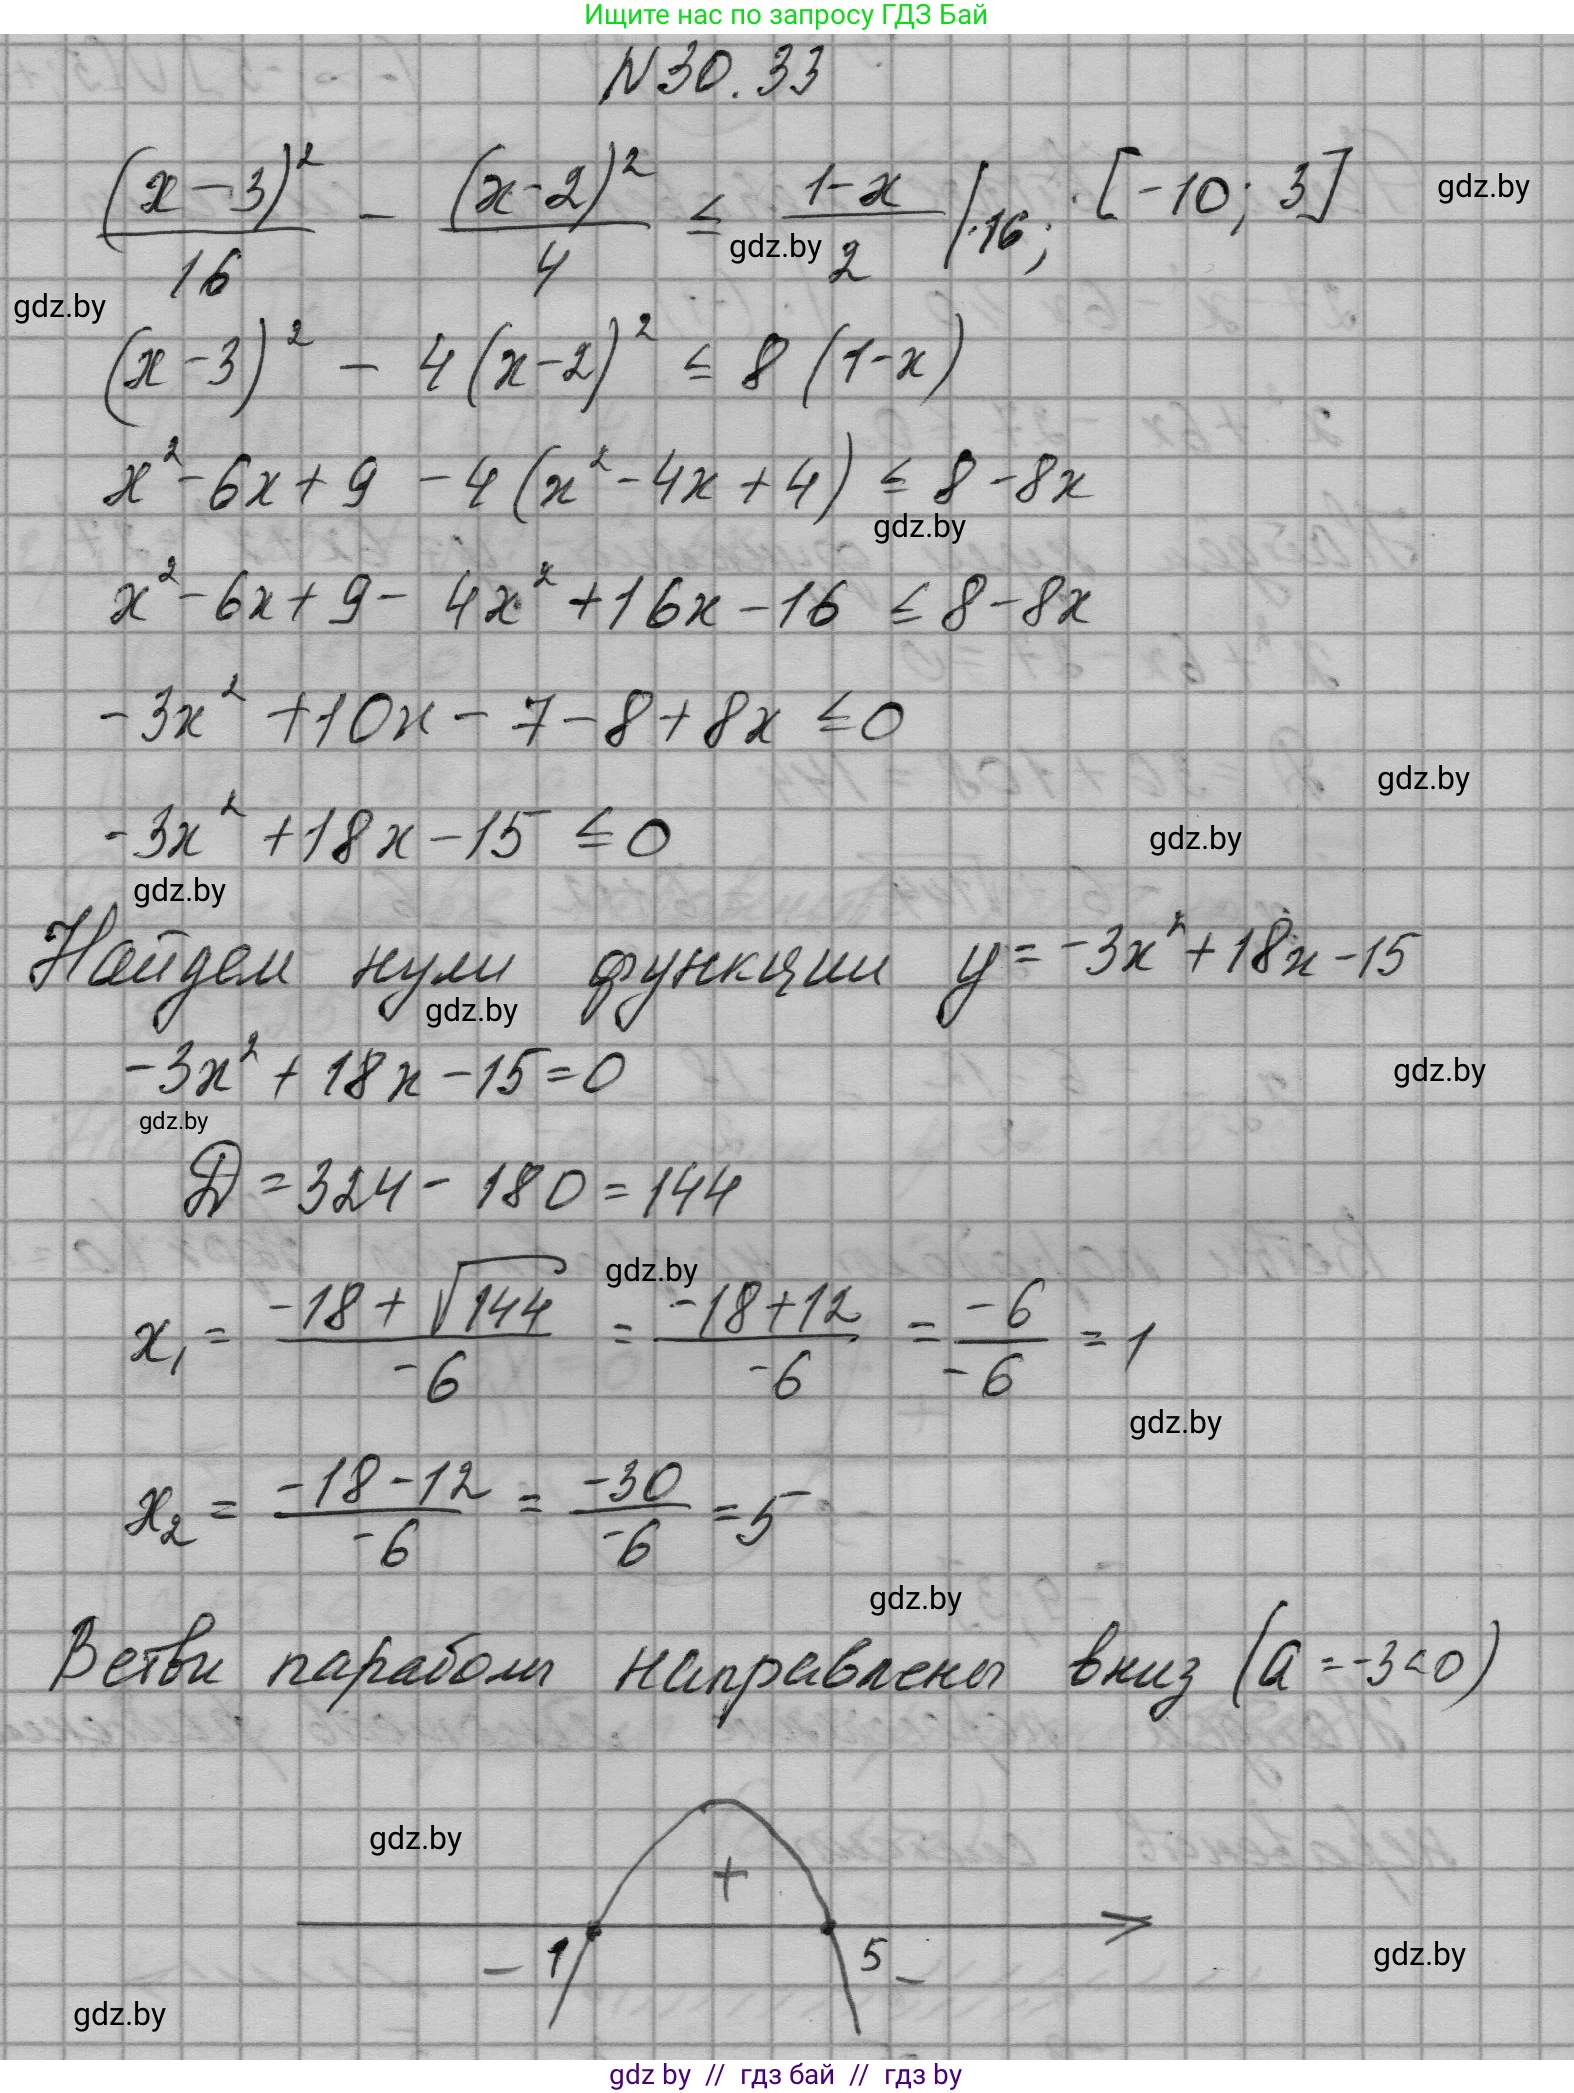 Ищите нас по запросу ГДЗ Бай
N30.33
(x-3)²/16 - (x-2)²/4 ≤ (1-x)/2 |·16; [-10; 3]
gdz.by
gdz.by
gdz.by
(x-3)² - 4(x-2)² ≤ 8(1-x)
x²-6x+9 -4(x²-4x+4) ≤ 8-8x
gdz.by
x²-6x+9-4x²+16x-16 ≤ 8-8x
-3x²+10x-7-8+8x ≤ 0
gdz.by
-3x²+18x-15 ≤ 0
gdz.by
gdz.by
Найдем нули функции y=-3x²+18x-15
gdz.by
-3x²+18x-15=0
gdz.by
gdz.by
D=324-180=144
gdz.by
x₁ = (-18+√144)/-6 = (-18+12)/-6 = -6/-6 = 1
gdz.by
x₂ = (-18-12)/-6 = -30/-6 = 5
gdz.by
Ветви параболы направлены вниз (a=-3<0)
gdz.by
+
- 1 5 -
gdz.by
gdz.by
gdz by // гдз бай // гдз by